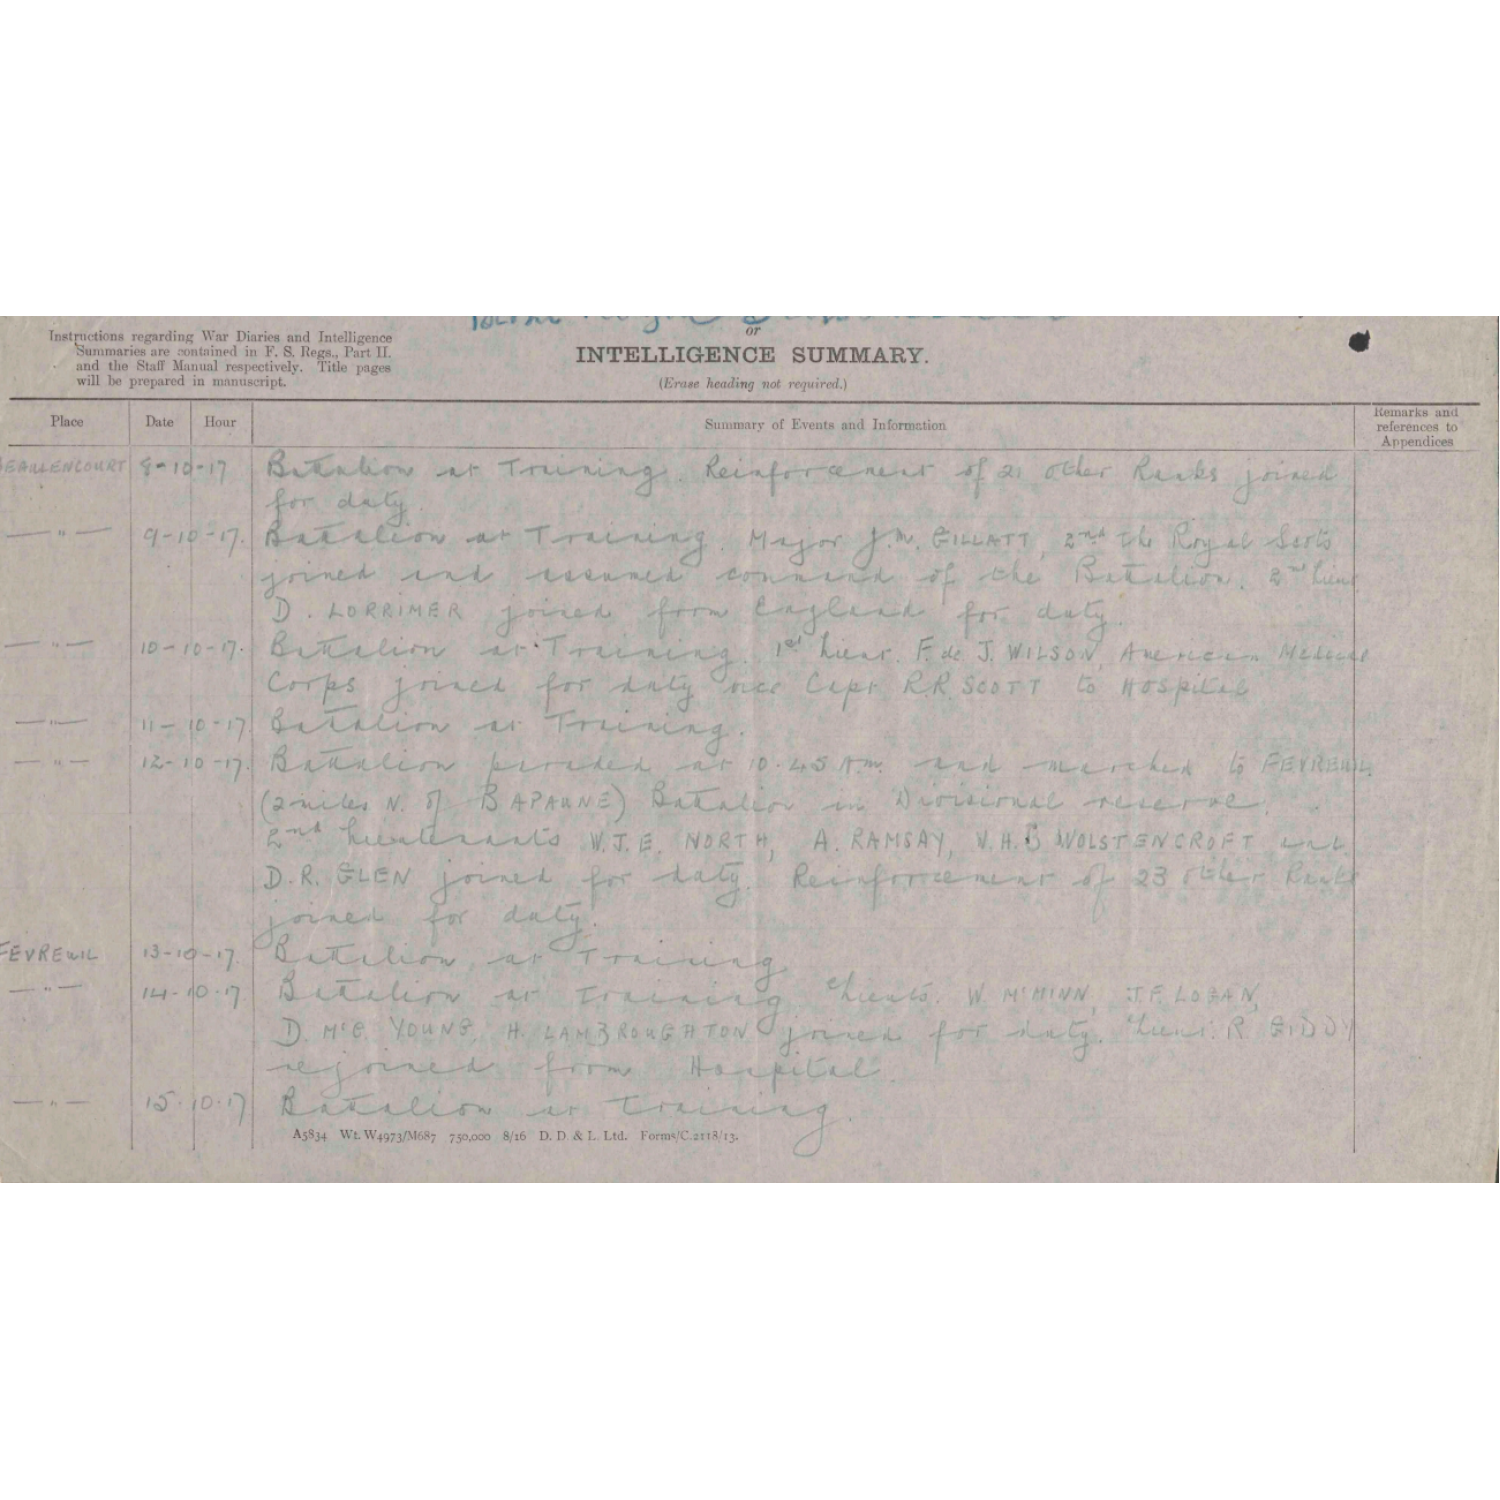 or
Instructions regarding War Diaries and Intelligence
Summaries are contained in F. S. Regs., Part II.
and the Staff Manual respectively. Title pages
will be prepared in manuscript.
INTELLIGENCE SUMMARY.
(Erase heading not required.)
Place Date Hour Summary of Events and Information Remarks and
references to
Appendices
BEAULENCOURT 8-10-17 Battalion at Training. Reinforcement of 21 other Ranks joined
for duty.
— " — 9-10-17. Battalion at Training. Major J.M. GILLATT, 2nd the Royal Scots
joined and assumed command of the Battalion. 2nd Lieut
D. LORRIMER joined from England for duty.
— " — 10-10-17. Battalion at Training. 1st Lieut. F. de J. WILSON, American Medical
Corps joined for duty vice Capt R.R. SCOTT to Hospital
— " — 11-10-17 Battalion at Training.
— " — 12-10-17. Battalion paraded at 10.45 A.m. and marched to FEVREUIL
(2 miles N. of BAPAUME) Battalion in Divisional reserve.
2nd Lieutenants W.J.E. NORTH, A. RAMSAY, V.H.B WOLSTENCROFT and
D.R. GLEN joined for duty. Reinforcement of 23 other Ranks
joined for duty.
FEVREUIL 13-10-17. Battalion at Training
— " — 14-10-17 Battalion at training Lieuts. W. McMINN, J.F. LOGAN,
D. McG. YOUNG, H. LAMBROUGHTON joined for duty. Lieut. R. GIDDY
rejoined from Hospital.
— " — 15.10.17 Battalion at training.
A5834 Wt. W4973/M687 750,000 8/16 D. D. & L. Ltd. Forms/C.2118/13.